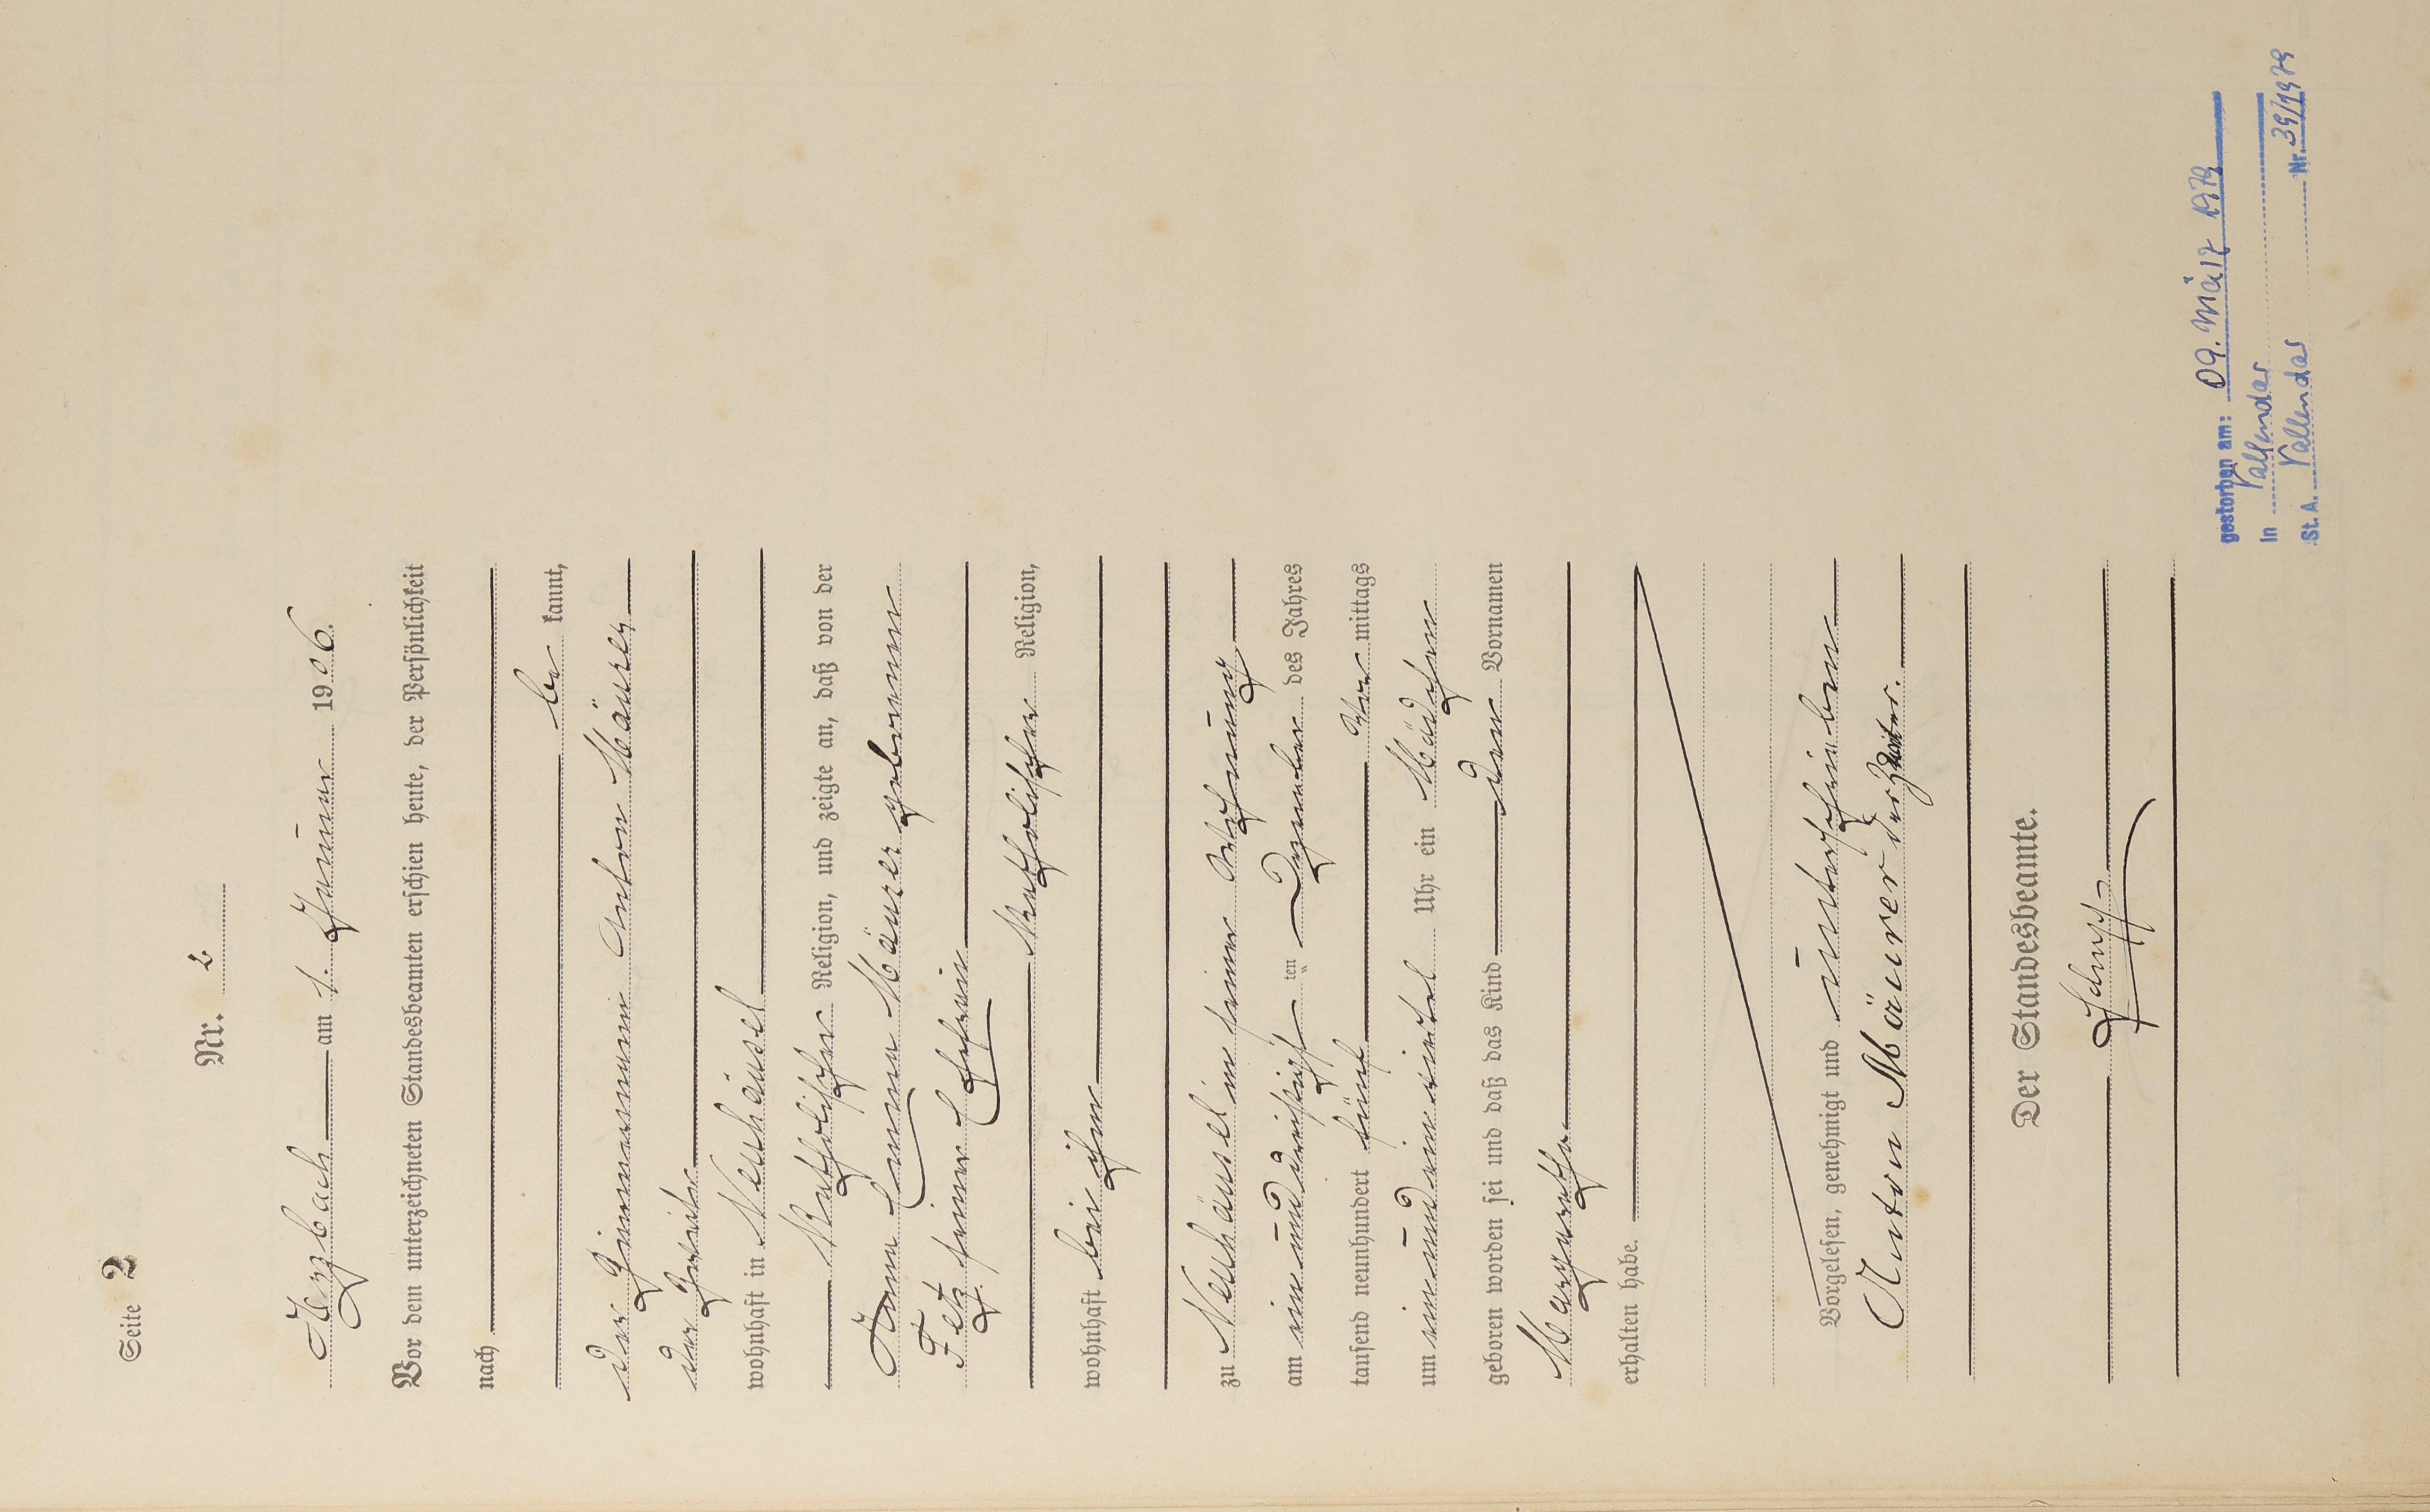 Seite 2
Nr. 2
Arzbach am 1. Januar 1906.
Vor dem unterzeichneten Standesbeamten erschien heute, der Persönlichkeit
nach
be kannt,
der Zimmermann Anton Mäurer
der Zweite
wohnhaft in Neuhäusel
Katholischer Religion, und zeigte an, daß von der
Anna Emma Mäurer geborenen
Fetz seiner Ehefrau
Katholischer Religion,
wohnhaft bei ihm
zu Neuhäusel in seiner Wohnung
am ein und dreißigsten Dezember des Jahres
tausend neunhundert fünf Vor mittags
um ein und ein viertel Uhr ein Mädchen
geboren worden sei und daß das Kind den Vornamen
Margaretha
erhalten habe.
Vorgelesen, genehmigt und unterschrieben
Anton Mäurer der Zweiter.
Der Standesbeamte.
gestorben am: 09. März 1979
in Vallendar
St. A. Vallendar Nr. 39/1979